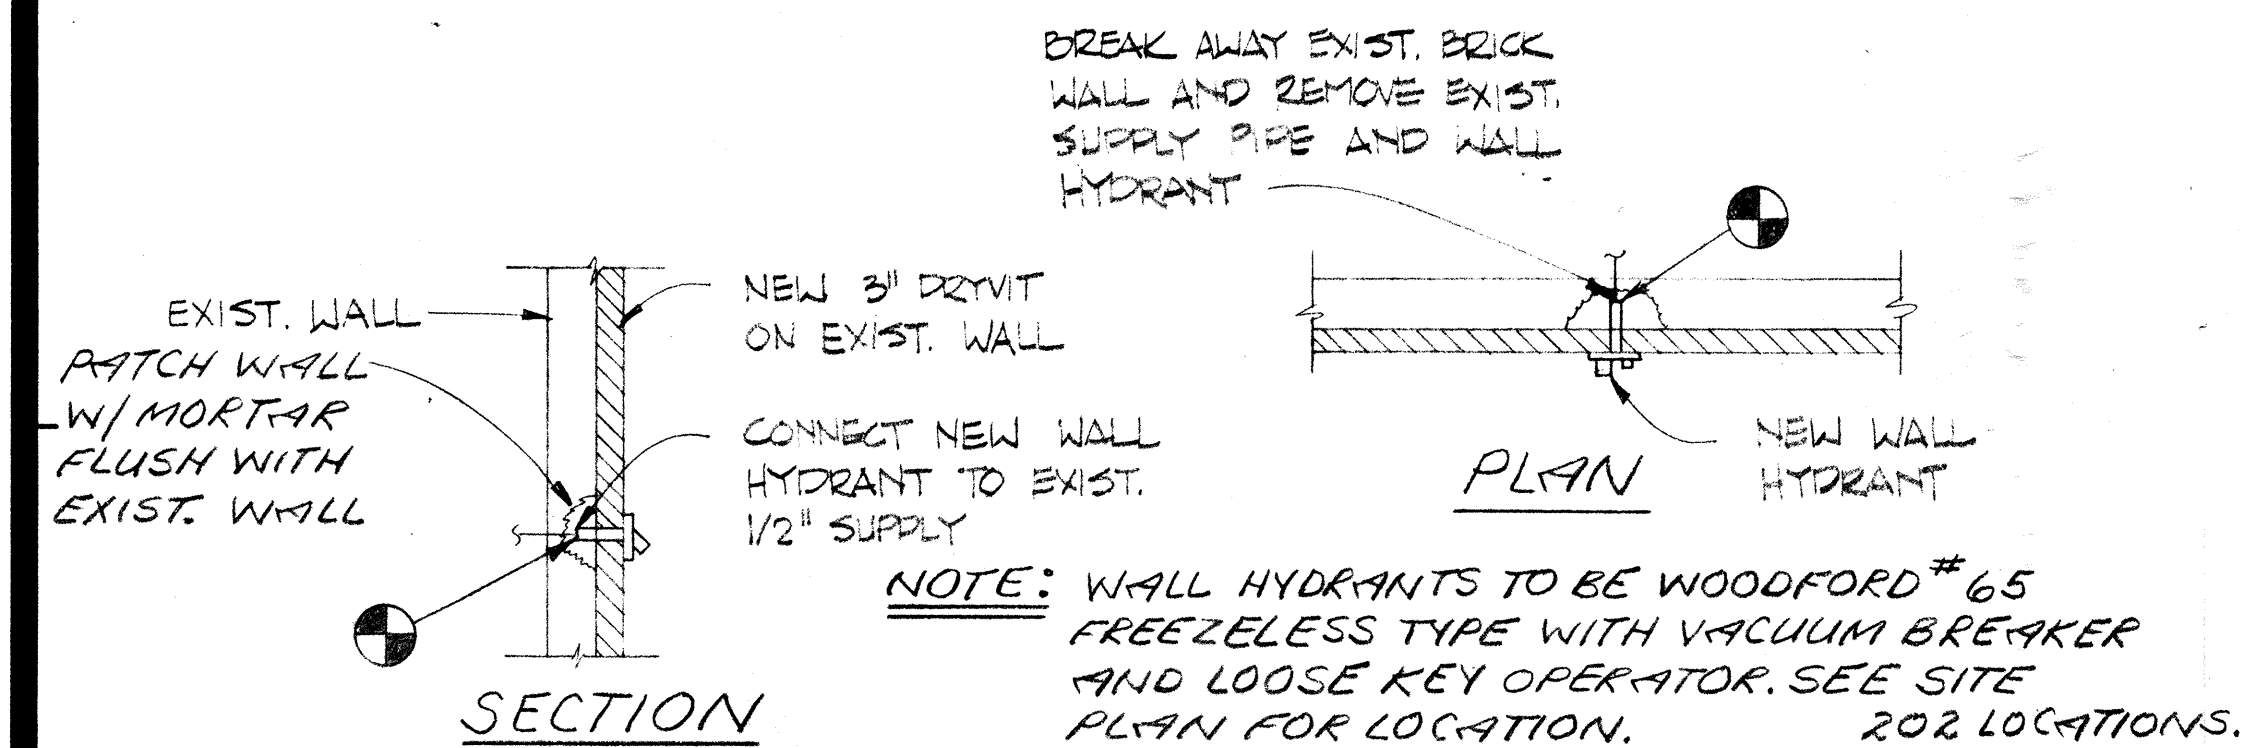 BREAK AWAY EXIST. BRICK
WALL AND REMOVE EXIST.
SUPPLY PIPE AND WALL
HYDRANT
EXIST. WALL
PATCH WALL
W/ MORTAR
FLUSH WITH
EXIST. WALL
NEW 3" DRYVIT
ON EXIST. WALL
CONNECT NEW WALL
HYDRANT TO EXIST.
1/2" SUPPLY
SECTION
NEW WALL
HYDRANT
PLAN
NOTE: WALL HYDRANTS TO BE WOODFORD #65
FREEZELESS TYPE WITH VACUUM BREAKER
AND LOOSE KEY OPERATOR. SEE SITE
PLAN FOR LOCATION. 202 LOCATIONS.